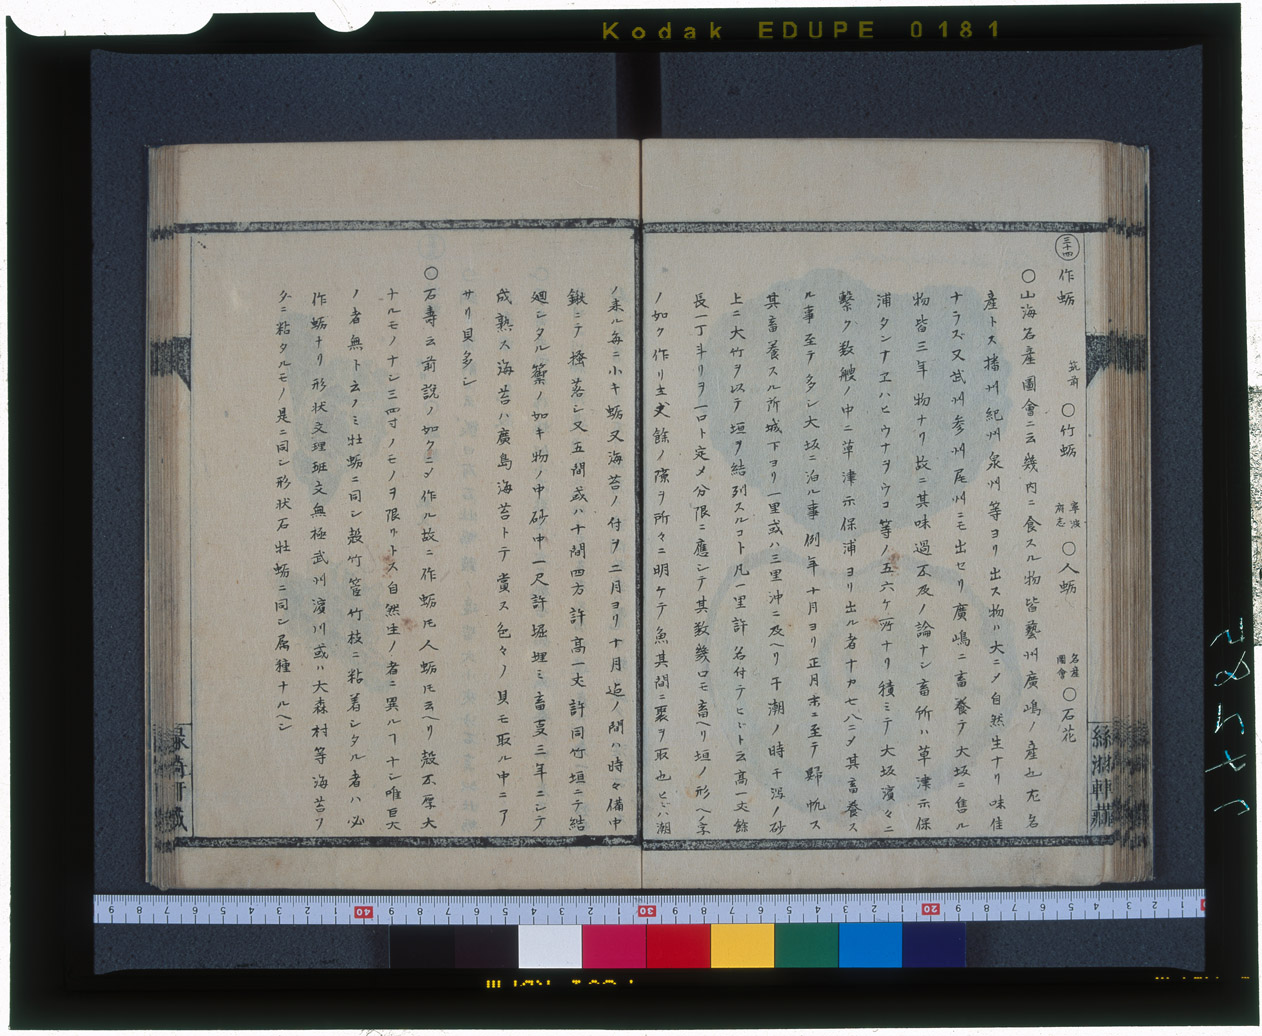 Kodak EDUPE 0181
三十四
作蛎 筑前 ○竹蛎 寧波府志 ○人蛎 名産圖會 ○石花
○山海名産圖會ニ云幾内ニ食スル物皆藝州廣嶋ノ産也尤名
産トス播州紀州泉州等ヨリ出ス物ハ大ニメ自然生ナリ味佳
ナラズ又武州参州尾州ニモ出セリ廣嶋ニ畜養テ大坂ニ售ル
物皆三年物ナリ故ニ其味過不及ノ論ナシ畜所ハ草津示保
浦タンナヱハヒウナヲウコ等ノ五六ケ所ナリ積ミテ大坂濱々ニ
繋ク数艘ノ中ニ草津示保浦ヨリ出ル者十カ七八ニメ其畜養ス
ル事至テ多シ大坂ニ泊ル事例年十月ヨリ正月末ニ至テ歸帆ス
其畜養スル所城下ヨリ一里或ハ三里沖ニ及ヘリ干潮ノ時干潟ノ砂
上ニ大竹ヲ以テ垣ヲ結列スルコト凡一里許名付テヒヾト云高一丈餘
長一丁斗リヲ一口ト定メ分限ニ應シテ其数幾口モ畜ヘリ垣ノ形ヘノ字
ノ如ク作リ三丈餘ノ隙ヲ所々ニ明ケテ魚其間ニ聚ヲ取也ヒヾハ潮
ノ来ル毎ニ小キ蛎又海苔ノ付ヲ二月ヨリ十月迠ノ間ハ時々備中
鍬ニテ掻落シ又五間或ハ十間四方許高一丈許同竹垣ニテ結
廻シタル籞ノ如キ物ノ中砂中一尺許堀埋ミ畜夏三年ニシテ
成熟ス海苔ハ廣島海苔トテ賞ス色々ノ貝モ取ル中ニア
サリ貝多シ
○石壽云前説ノ如クニメ作ル故ニ作蛎𪜈人蛎𪜈云ヘリ殻不厚大
ナルモノナシ三四寸ノモノヲ限リトス自然生ノ者ニ異ルヿナシ唯巨大
ノ者無ト云ノミ牡蛎ニ同シ殻竹管竹枝ニ粘着シタル者ハ必
作蛎ナリ形状文理班文無極武川濱川或ハ大森村等海苔ヲ
タニ粘タルモノ是ニ同シ形状石牡蛎ニ同シ属種ナルヘシ